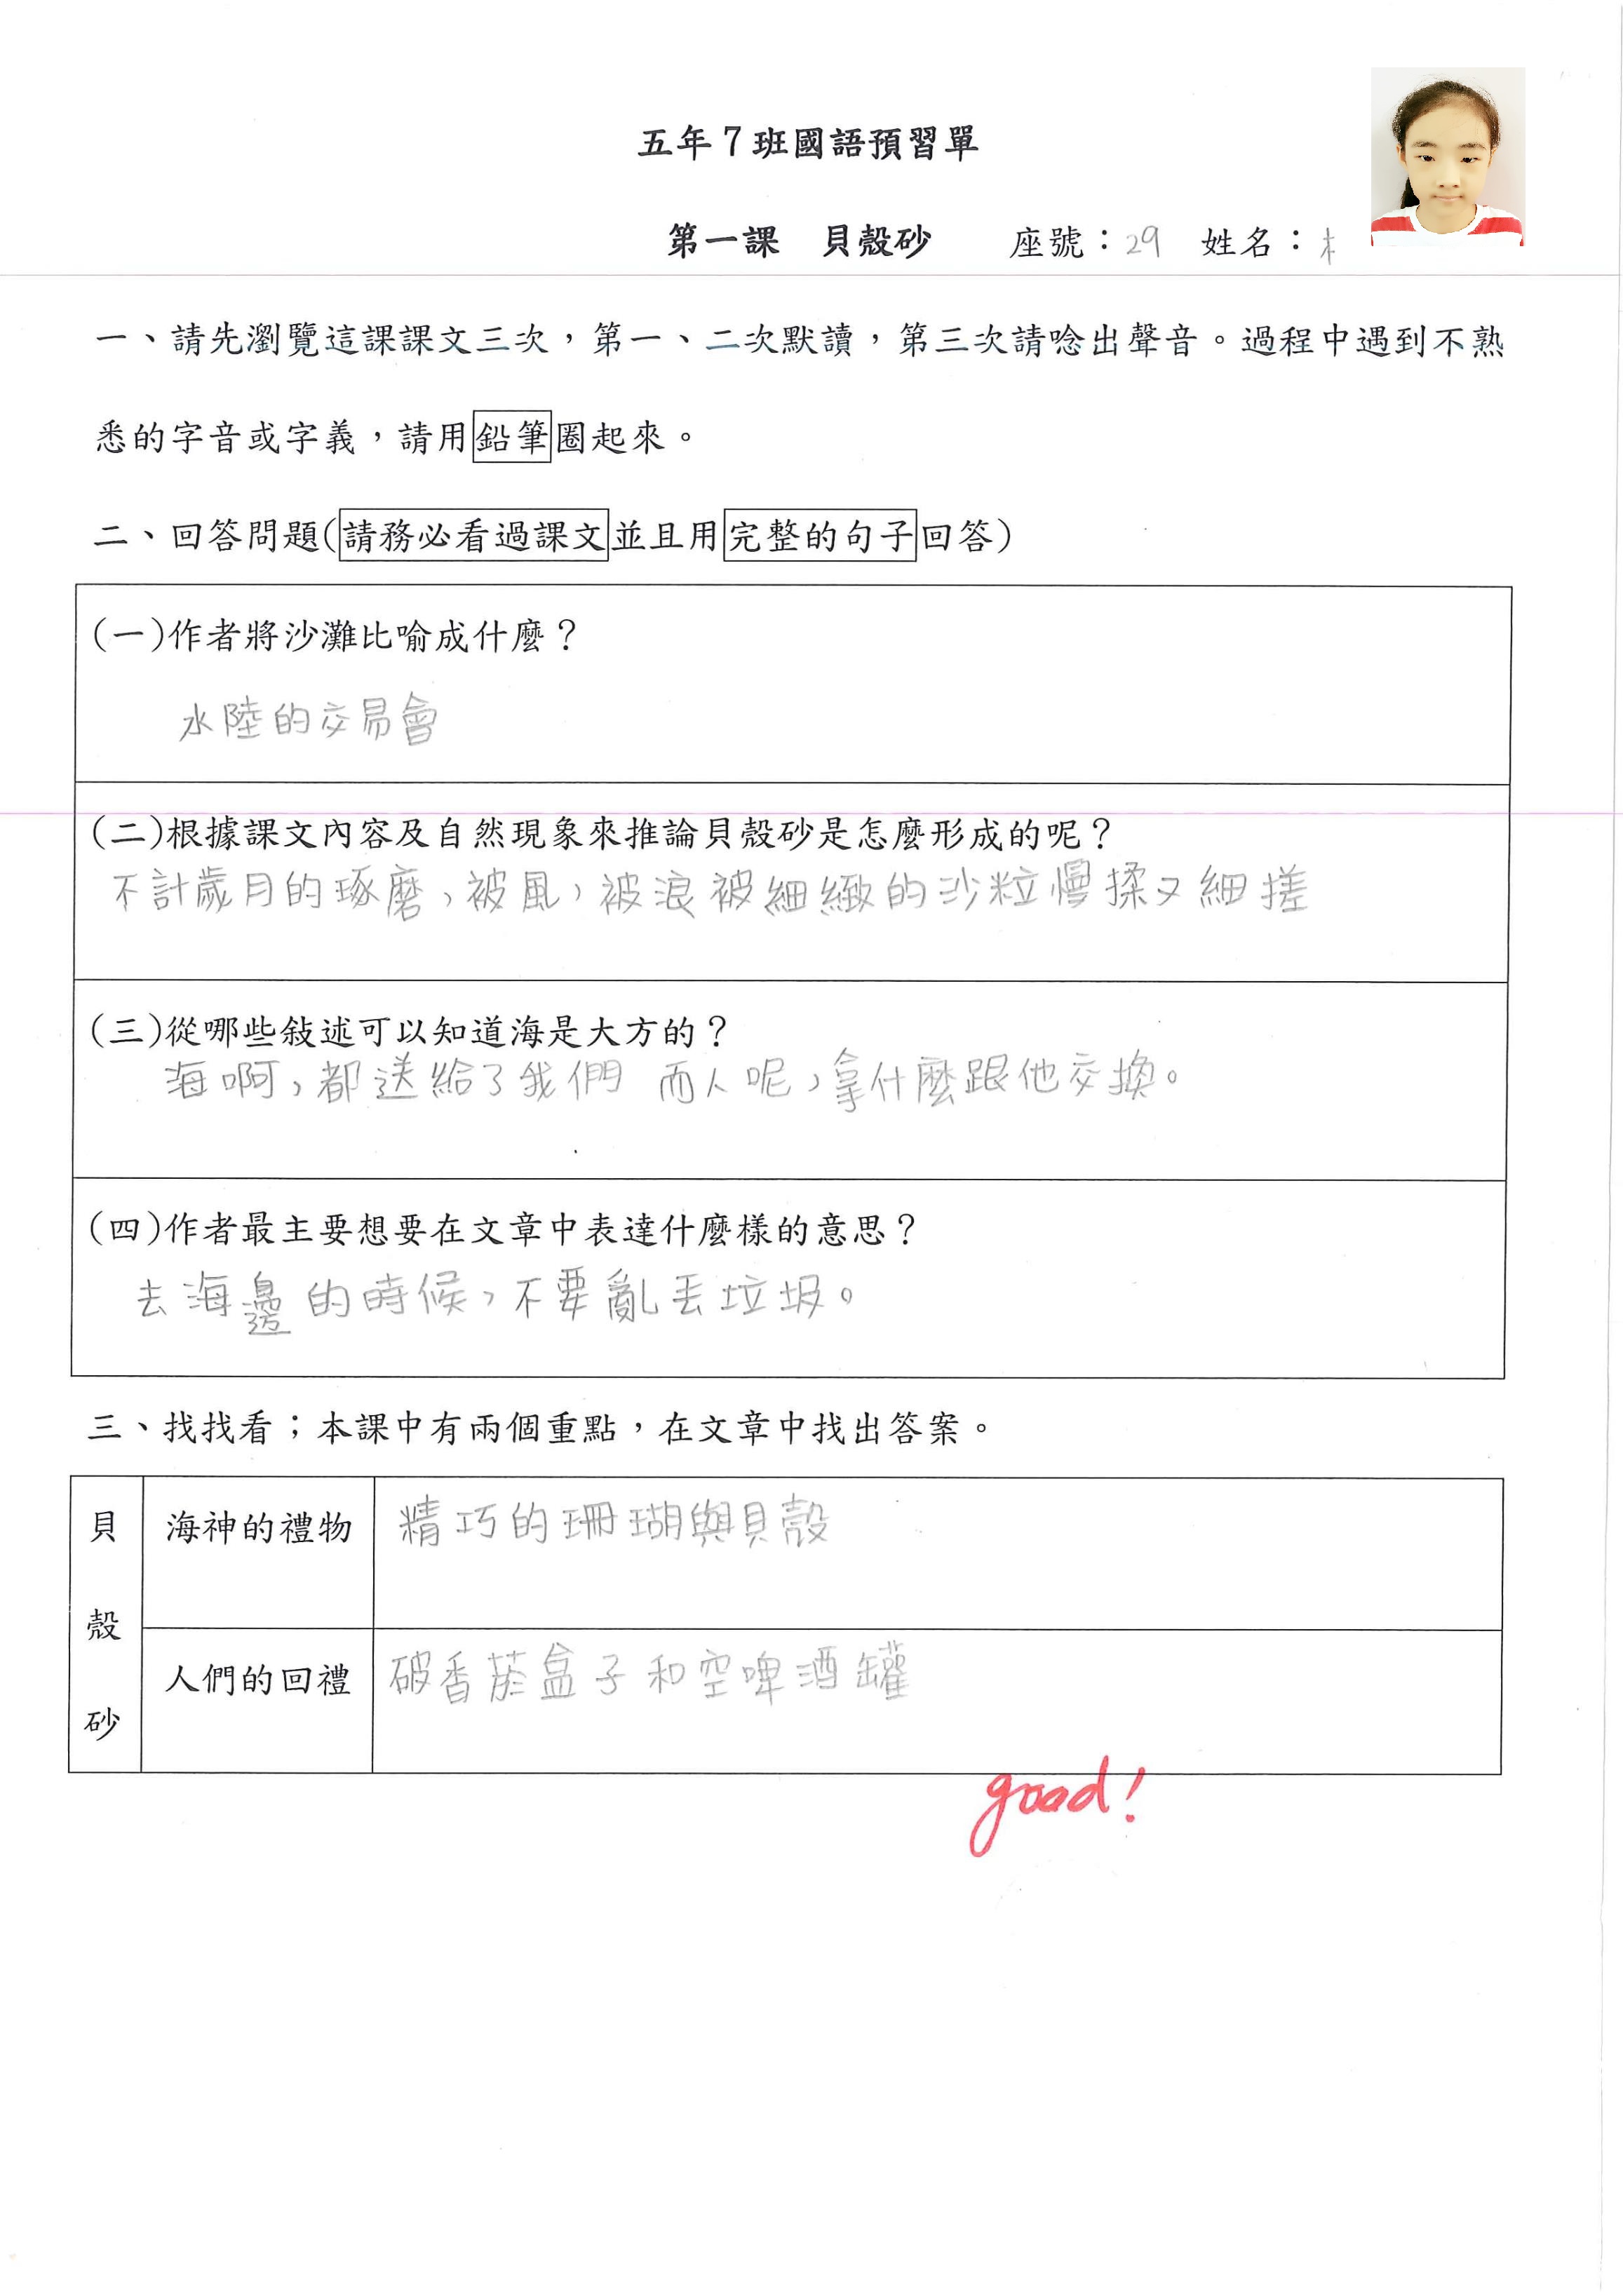 五年7班國語預習單
第一課　貝殼砂　座號：29　姓名：
一、請先瀏覽這課課文三次，第一、二次默讀，第三次請唸出聲音。過程中遇到不熟
悉的字音或字義，請用鉛筆圈起來。
二、回答問題(請務必看過課文並且用完整的句子回答)
(一)作者將沙灘比喻成什麼？
水陸的交易會
(二)根據課文內容及自然現象來推論貝殼砂是怎麼形成的呢？
不計歲月的琢磨，被風，被浪被細緻的沙粒慢揉又細搓
(三)從哪些敍述可以知道海是大方的？
海啊，都送給了我們 而人呢，拿什麼跟他交換。
(四)作者最主要想要在文章中表達什麼樣的意思？
去海邊的時候，不要亂丟垃圾。
三、找找看；本課中有兩個重點，在文章中找出答案。
貝殼砂
海神的禮物 精巧的珊瑚與貝殼
人們的回禮 破香菸盒子和空啤酒罐
good!